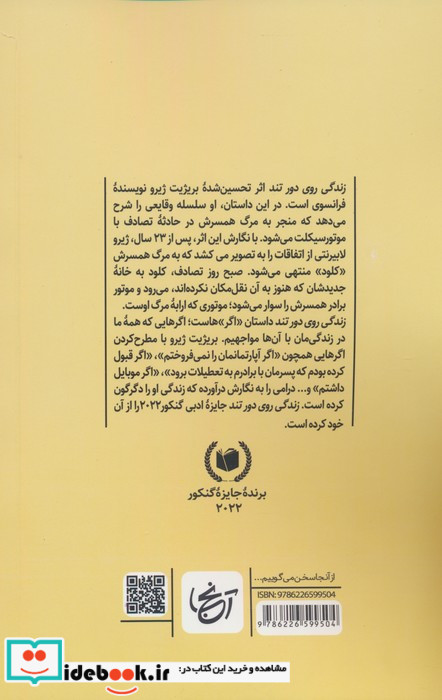 زندگی روی دور تند اثر تحسین‌شدهٔ بریژیت ژیرو نویسندهٔ
فرانسوی است. در این داستان، او سلسله وقایعی را شرح
می‌دهد که منجر به مرگ همسرش در حادثهٔ تصادف با
موتورسیکلت می‌شود. با نگارش این اثر، پس از ۲۳ سال، ژیرو
لابیرنتی از اتفاقات را به تصویر می کشد که به مرگ همسرش
«کلود» منتهی می‌شود. صبح روز تصادف، کلود به خانهٔ
جدیدشان که هنوز به آن نقل‌مکان نکرده‌اند، می‌رود و موتور
برادر همسرش را سوار می‌شود؛ موتوری که ارابهٔ مرگ اوست.
زندگی روی دور تند داستان «اگر»هاست؛ اگرهایی که همهٔ ما
در زندگی‌مان با آن‌ها مواجهیم. بریژیت ژیرو با مطرح‌کردن
اگرهایی همچون «اگر آپارتمانمان را نمی‌فروختم»، «اگر قبول
کرده بودم که پسرمان با برادرم به تعطیلات برود»، «اگر موبایل
داشتم» و... درامی را به نگارش درآورده که زندگی او را دگرگون
کرده است. زندگی روی دور تند جایزهٔ ادبی گنکور ۲۰۲۲ را از آن
خود کرده است.
برندهٔ جایزهٔ گنکور
۲۰۲۲
از آنجا سخن می‌گوییم...
ISBN: 9786226599504
آنجا
9 786226 599504
idebook.ir
مشاهده و خرید این کتاب در: